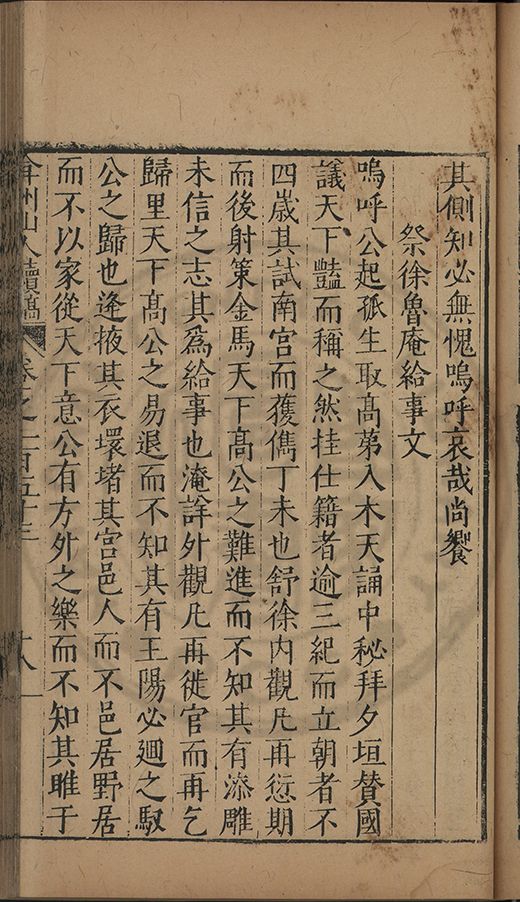 其側知必無愧嗚呼哀哉尚饗
祭徐魯庵給事文
嗚呼公起孤生取髙苐入木天誦中秘拜夕垣賛國
議天下豔而稱之然挂仕籍者逾三紀而立朝者不
四嵗其試南宫而獲儁丁未也舒徐内觀凡再愆期
而後射策金馬天下髙公之難進而不知其有漆雕
未信之志其爲給事也淹詳外觀凡再徙官而再乞
歸里天下髙公之易退而不知其有王陽必廻之馭
公之歸也逢掖其衣環堵其宫邑人而不邑居野居
而不以家從天下意公有方外之樂而不知其睢于
弇州山人續稿 卷之一百五十三 十八